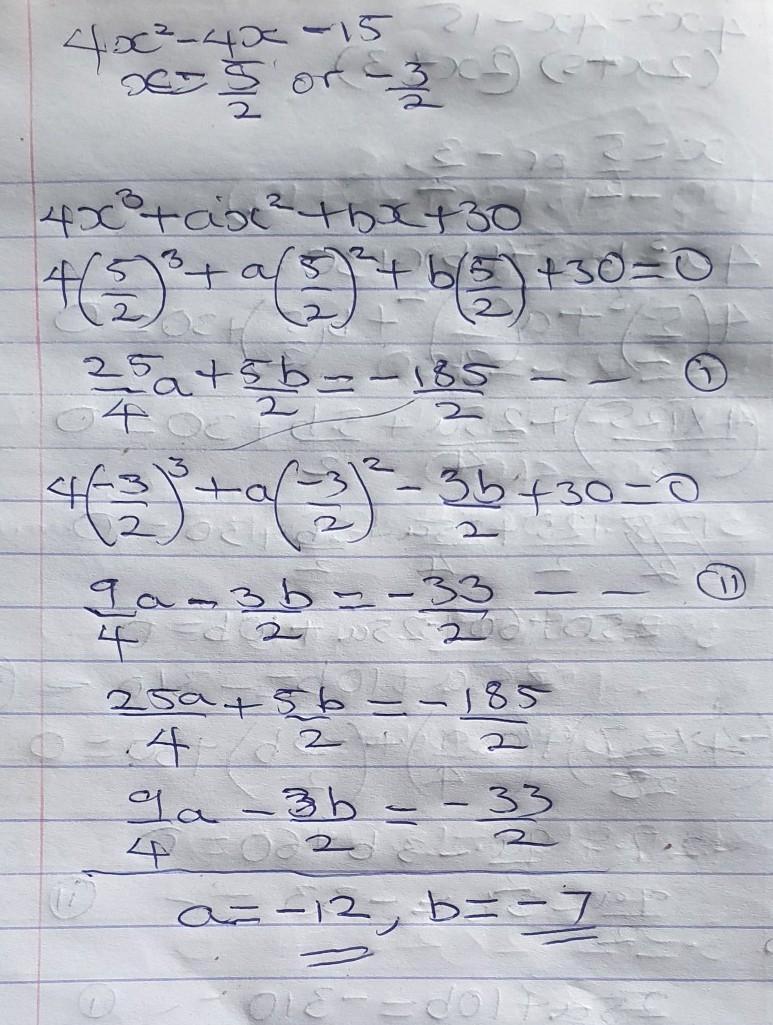 4x² - 4x - 15
x = 5/2 or -3/2
4x³ + ax² + bx + 30
4(5/2)³ + a(5/2)² + b(5/2) + 30 = 0
25/4 a + 5b/2 = -185/2 - - (i)
4(-3/2)³ + a(-3/2)² - 3b/2 + 30 = 0
9/4 a - 3b/2 = -33/2 - - (ii)
25a/4 + 5b/2 = -185/2
9/4 a - 3b/2 = -33/2
a = -12, b = -7